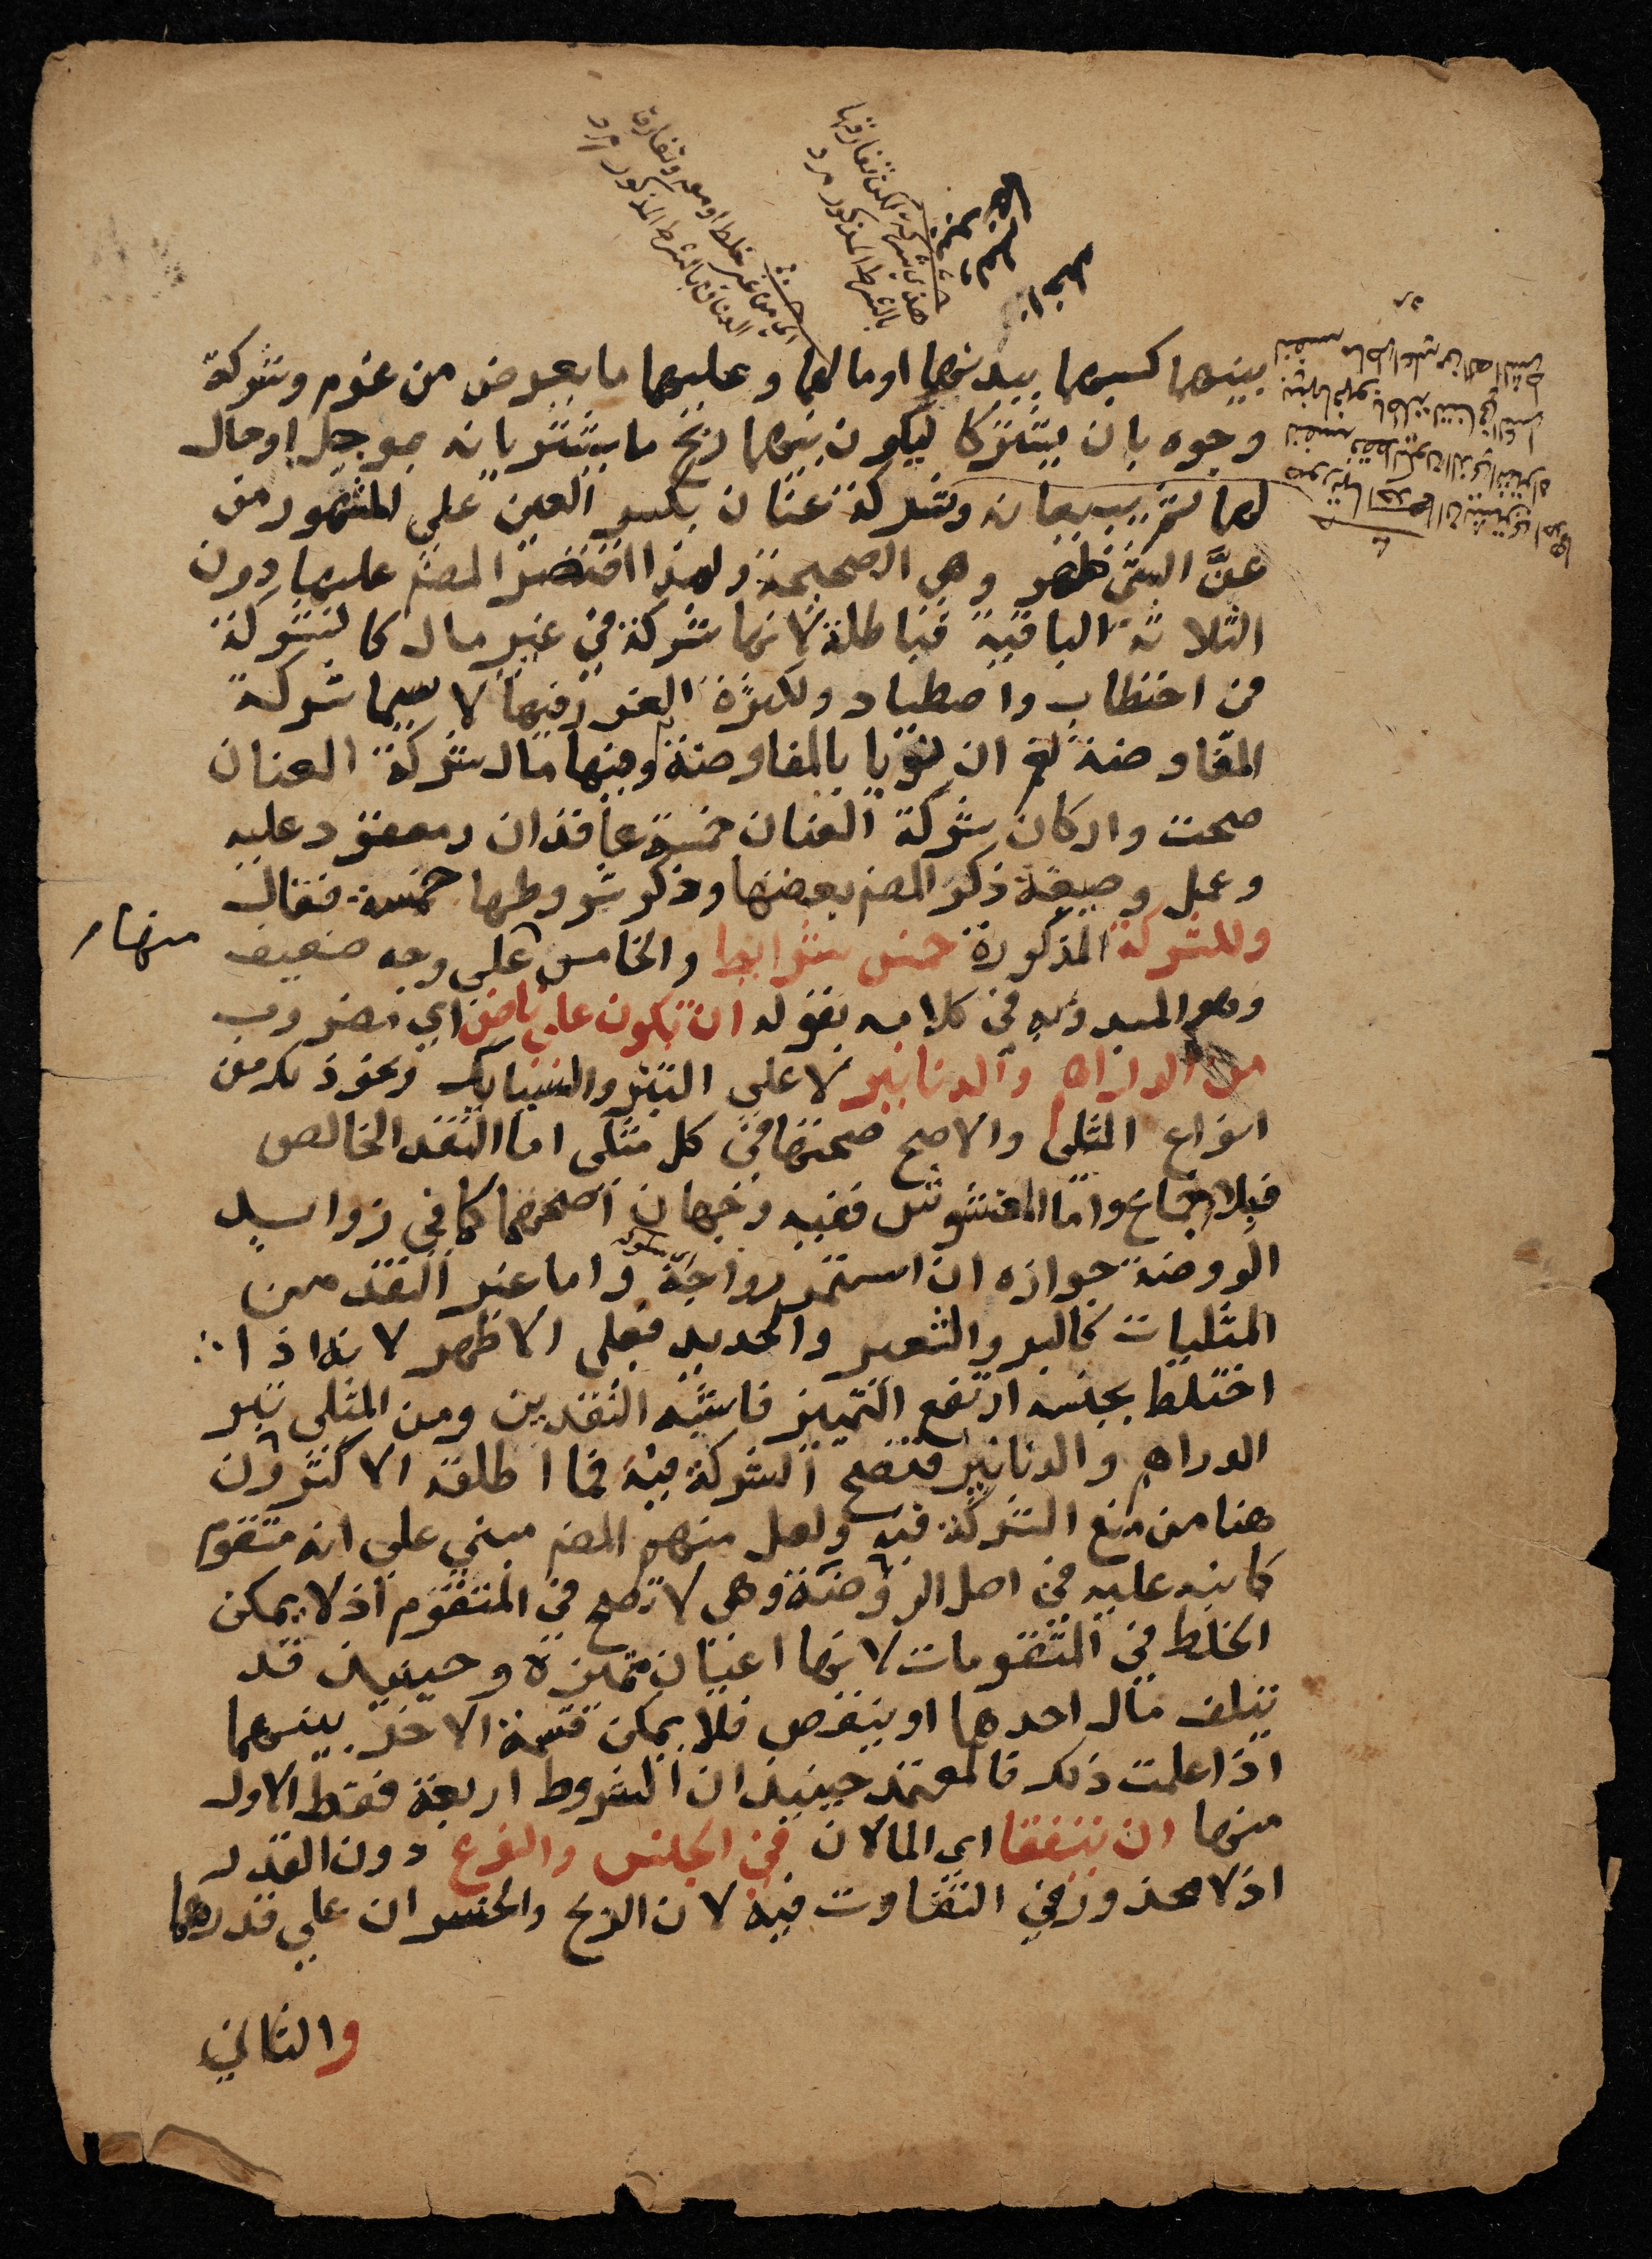 بينهما كسبهما ببدنهما او مالهما وعليهما ما يعرض من غرم وشركة
وجوه بان يشتركا ليكون بينهما ربح ما يشتريانه بموجل او حال
لهما ثم يبيعانه وشركة عنان بكسر العين على المشهور من
عنَّ الشئ ظهر وهي الصحيحة ولهذا اقتصر المصنف عليها دون
الثلاثة الباقية فباطلة لانها شركة في غير مال كالشركة
في احتطاب واصطياد ولكثرة الغرر فيها لا سيما شركة
المفاوضة نعم ان نويا بالمفاوضة وفيها مال شركة العنان
صحت واركان شركة العنان خمسة عاقدان ومعقود عليه
وعمل وصيغة ذكر المصنف بعضها وذكر شروطها خمسة فقال
وللشركة المذكورة خمس شرايط والخامس منها على وجه ضعيف
وهو المبدوء به في كلامه بقوله ان تكون على ناض اي مضروب
من الدراهم والدنانير لا على التبر والسبايك ونحو ذلك من
انواع المثلى والاصح صحتها في كل مثلى اما النقد الخالص
فبالاجماع واما المغشوش ففيه وجهان اصحهما كما في زوايد
الروضة جوازه ان استمر رواجه واما غير النقد من
المثليات كالبر والشعير والحديد فعلى الاظهر لانه اذا
اختلط بجنسه ارتفع التميز فاشبه النقدين ومن المثلى تبر
الدراهم والدنانير فتصح الشركة فيه فما اطلقه الاكثرون
هنا من منع الشركة فيه ولعل منهم المصنف مبني على انه متقوم
كما نبه عليه في اصل الروضة وهي لا تصح في المتقوم اذ لا يمكن
الخلط في المتقومات لانها اعيان متميزة وحينيذ قد
يتلف مال احدهما او ينقص فلا يمكن قسمة الاخر بينهما
اذا علمت ذلك فالمعتمد حينيذ ان الشروط اربعة فقط الاول
منها ان يتفقا اي المالان في الجنس والنوع دون القدر
اذ لا محذور في التفاوت فيه لان الربح والخسران على قدرهما
والثاني